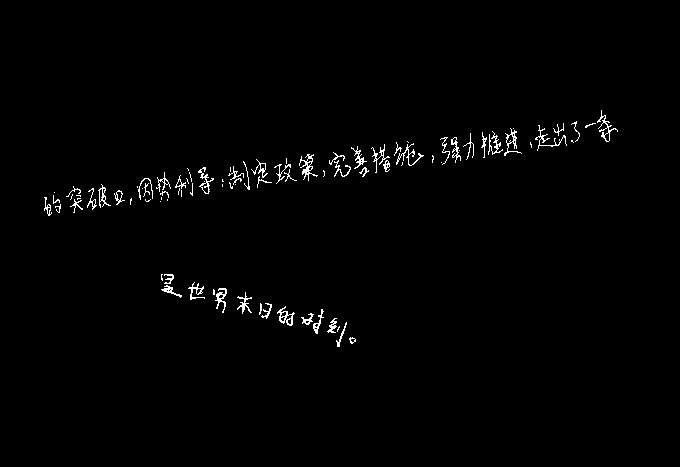 的突破口,因势利导,制定政策,完善措施,强力推进,走出了一条
是世界末日的时刻。